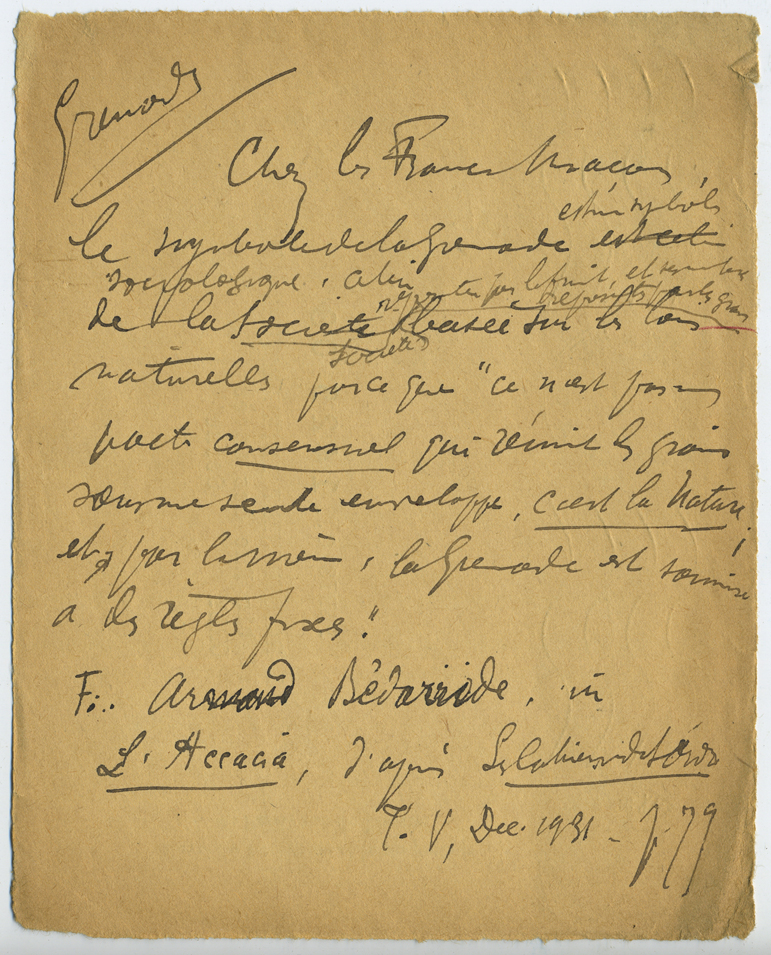 Grenade
Chez les Francs Maçons,
est un symbole
le symbole de la Grenade est celui
sociologique, celui représentée par le fruit, et
représentés par les grains
de la Société basée sur les lois
Société
naturelles parce que "ce n'est pas un
pacte consensuel qui réunit les grains
sous une seule enveloppe, c'est la Nature;
et, par là même, la Grenade est soumise
à des règles fixes."
F∴ Armand Bédarride, in
L'Accacia, d'après Les Cahiers de l'Ordre
T. V, Dec. 1931 - p. 79